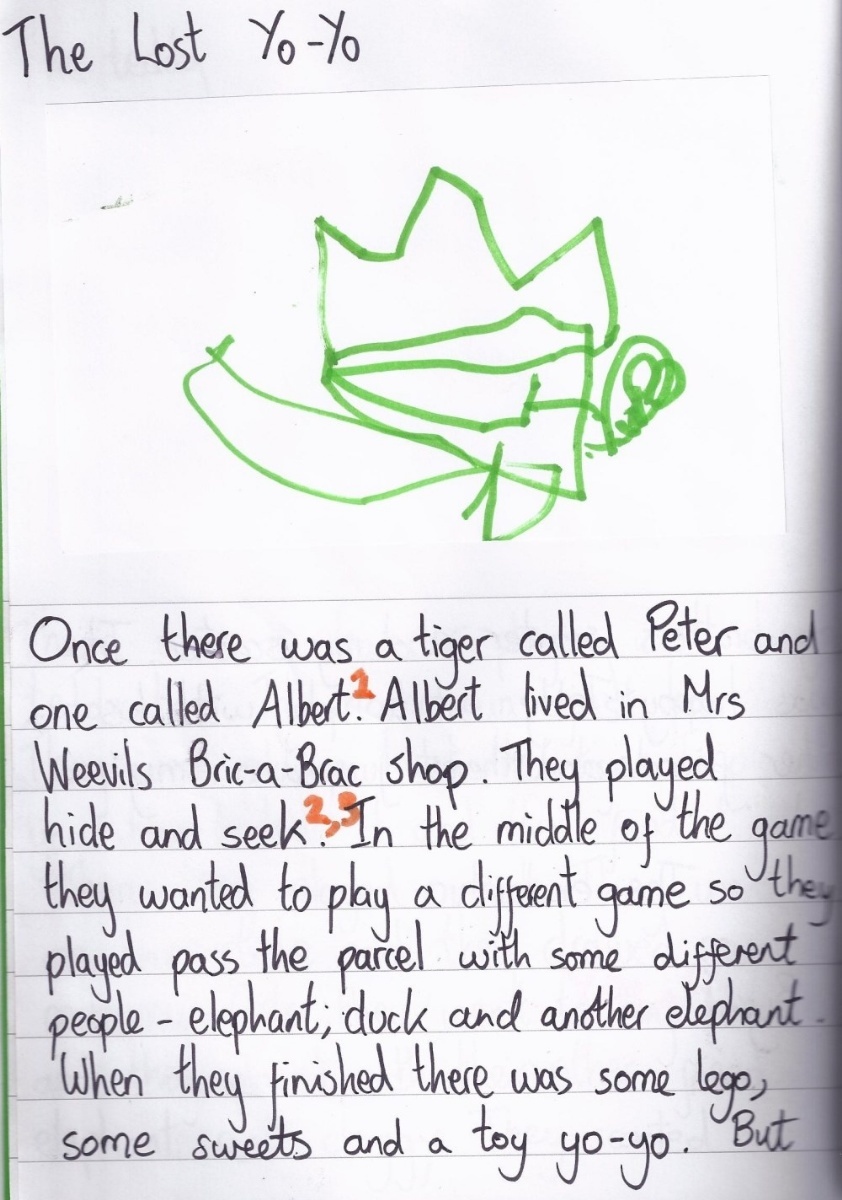 The Lost Yo-Yo
Once there was a tiger called Peter and
one called Albert.1 Albert lived in Mrs
Weevils Bric-a-Brac shop. They played
hide and seek.2,3 In the middle of the game
they wanted to play a different game so they
played pass the parcel with some different
people - elephant; duck and another elephant.
When they finished there was some lego,
some sweets and a toy yo-yo. But